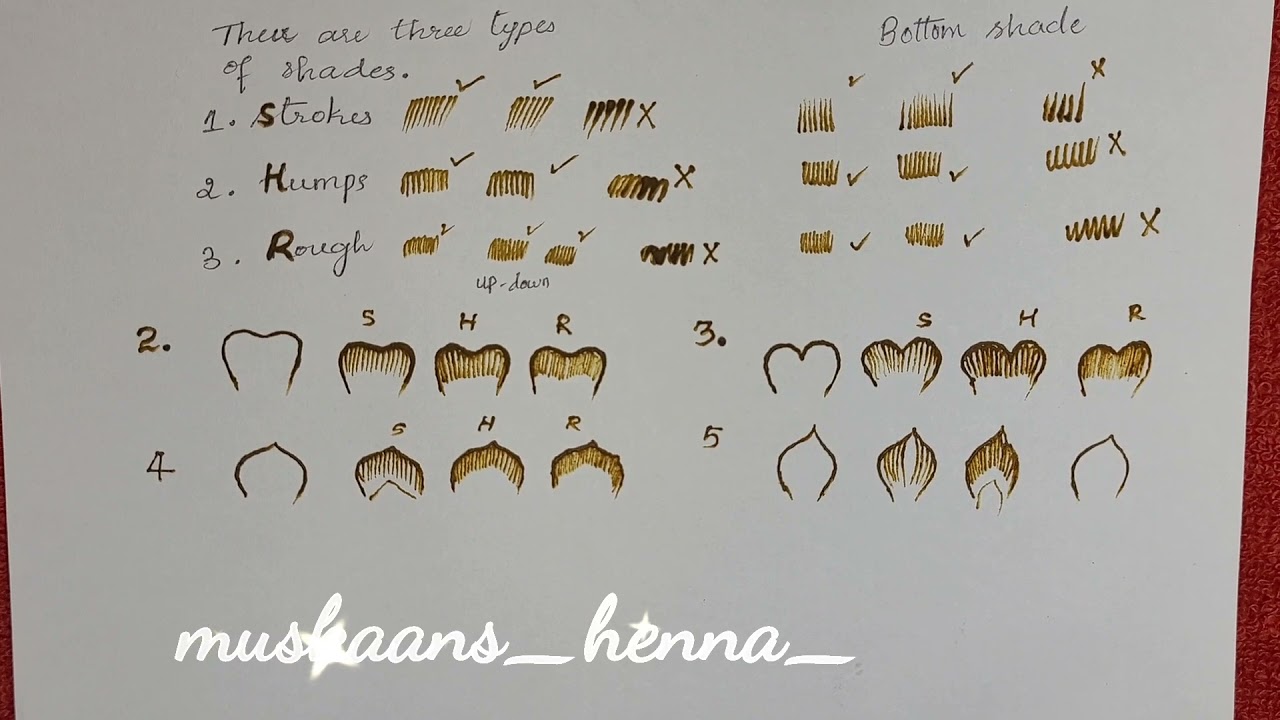 There are three types
of shades.
Bottom shade
1. Strokes ✓ ✓ X ✓ ✓ X
2. Humps ✓ ✓ X ✓ ✓ X
3. Rough ✓ ✓ ✓ X ✓ ✓ X
up-down
2. S H R
3. S H R
4 S H R
5
muskaans_henna_